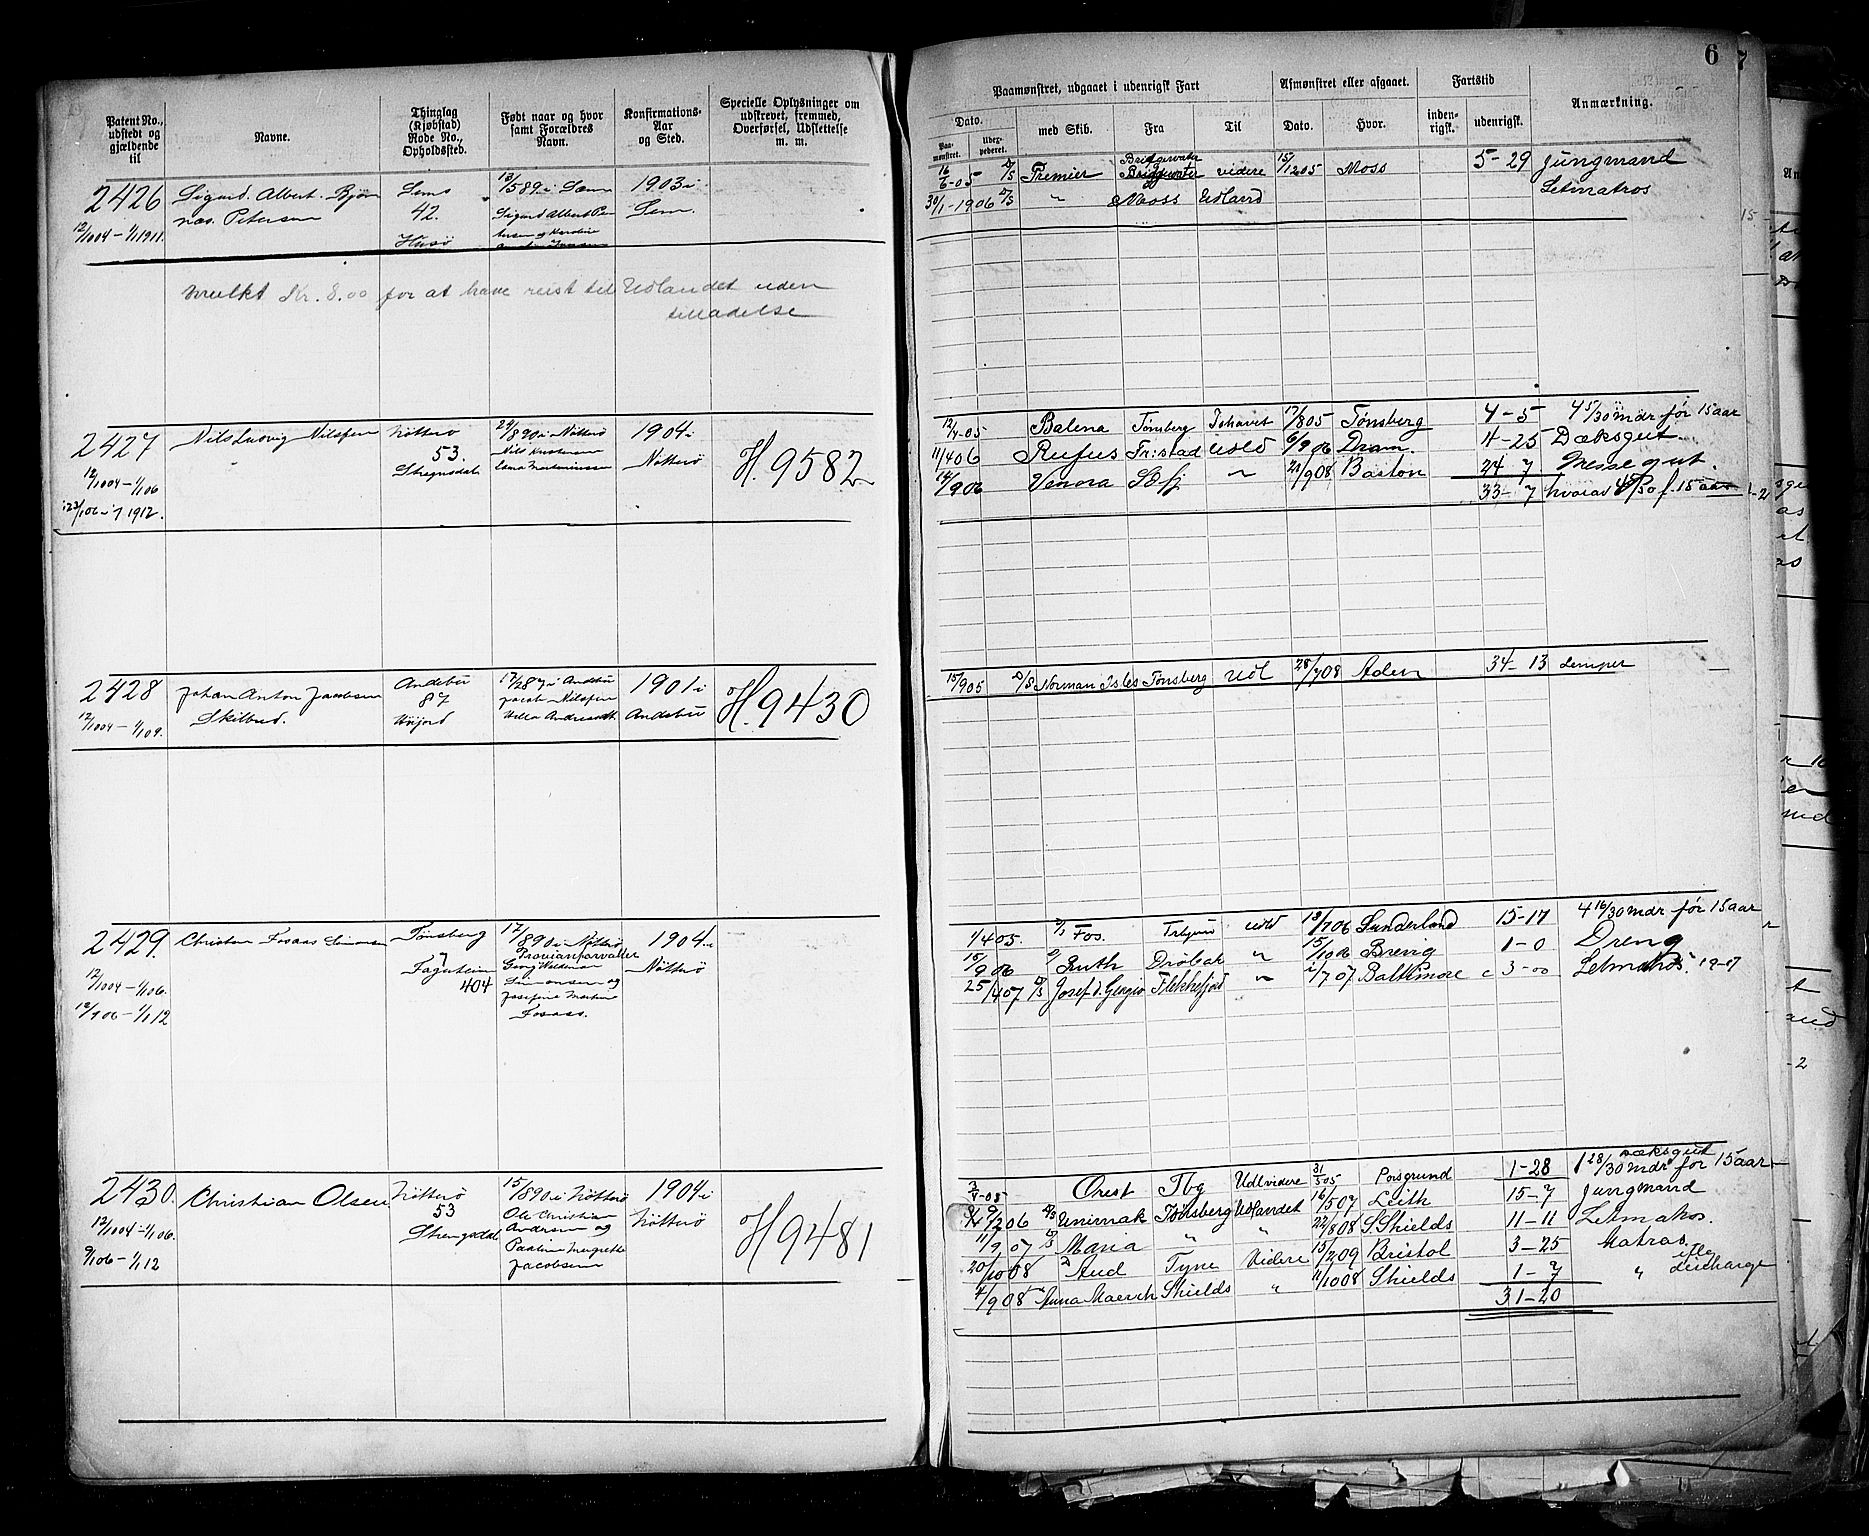 Patent No., udstedt og gjældende til
Navne.
Thinglag (Kjøbstad) Rode No., Opholdssted.
Født naar og hvor samt Forældres Navn.
Konfirmations-Aar og Sted.
Specielle Oplysninger om udskrevet, fremmed, Overførsel, Udslettelse m. m.
2426
12/1004 - 1/1 1911.
Sigurd Albert Bjørn
næs Petersen
Sems
42.
Husø
13/5 89 i Sem
Sigurd Albert Pe
1903 i
Sem
mulkt Kr. 8.00 for at have reist til Udlandet uden
tilladelse
2427
12/1004 - 1/106
1912.
Nils Ludvig Nilssen
Nøtterø
53.
890 i Nøtterø
1904 i
Nøtterø
H. 9582
2428
12/1004 - 1/109.
Johan Anton Jacobsen
Skilbred.
Andebu
87
Andebu
1901 i
Andebu
H. 9430
2429.
12/1004 - 1/106.
12/906 - 1/1 12
Christian Fosaas Simonsen
Tønsberg
7
Fagerheim
404
17/890 i Nøtterø
Proviantforvalter
Georg Waldemar
Simonsen og
Josefine Martine
Fosaas.
1904 i
Nøtterø
2430.
12/1004 - 1/106.
9/106 - 1/1 12
Christian Olsen
Nøtterø
53
15/890 i Nøtterø
Ole Christian
Andersen og
Pauline Margrethe
Jacobsen
1904 i
Nøtterø
H 9481
6
7
Paamønstret, udgaaet i udenrigsk Fart
Afmønstret eller afgaaet.
Fartstid
Anmærkning.
Dato.
Paamønstret.
med Skib.
Fra
Til
Dato.
Hvor.
indenrigsk.
udenrigsk.
16/6-05 D/S Premier Bridgwater videre 15/1205 Moss 5-29 Jungmand
30/1-1906 D/S " Moss Udland Letmatros
12/4-05 Balena Tønsberg Ishavet 17/805 Tønsberg 4-5 4 5/30 mdr før 15 aar
11/406 Rufus Fr:stad Udld 6/906 Dram. 4-25 Dæksgut
14/906 Venora " 908 Boston 24-7 Messegut.
33-7 hvorav 4 5/30 f. 15 aar
15/905 D/S Norman Isles Tønsberg Udl 28/708 Aden 34-13 Lemper
1/405. Fos. udld 18/706 Sunderland 15-17 4 16/30 mdr før 15 aar
15/906 Ruth Drøbak " 15/1006 Brevig 1-0 Dreng
25/407 Flekkefjord " 07 Baltimore 3-00 Letmatros. 19-17
Orest Tbg Udl videre 31/505 Porsgrund 1-28 1 28/30 mdr før 15 aar
Dæksgut
1206 Unimak Tønsberg Udlandet 16/507 Leith 15-7 Jungmand
11/907 Maria " " 22/808 S Shields 11-11 Letmatros.
20/1008 Aud Tyne Videre 15/209 Bristol 3-25 Matros.
4/908 Anna Maersk Shields " 11/1008 Shields 1-7 " iflg discharge
31-20